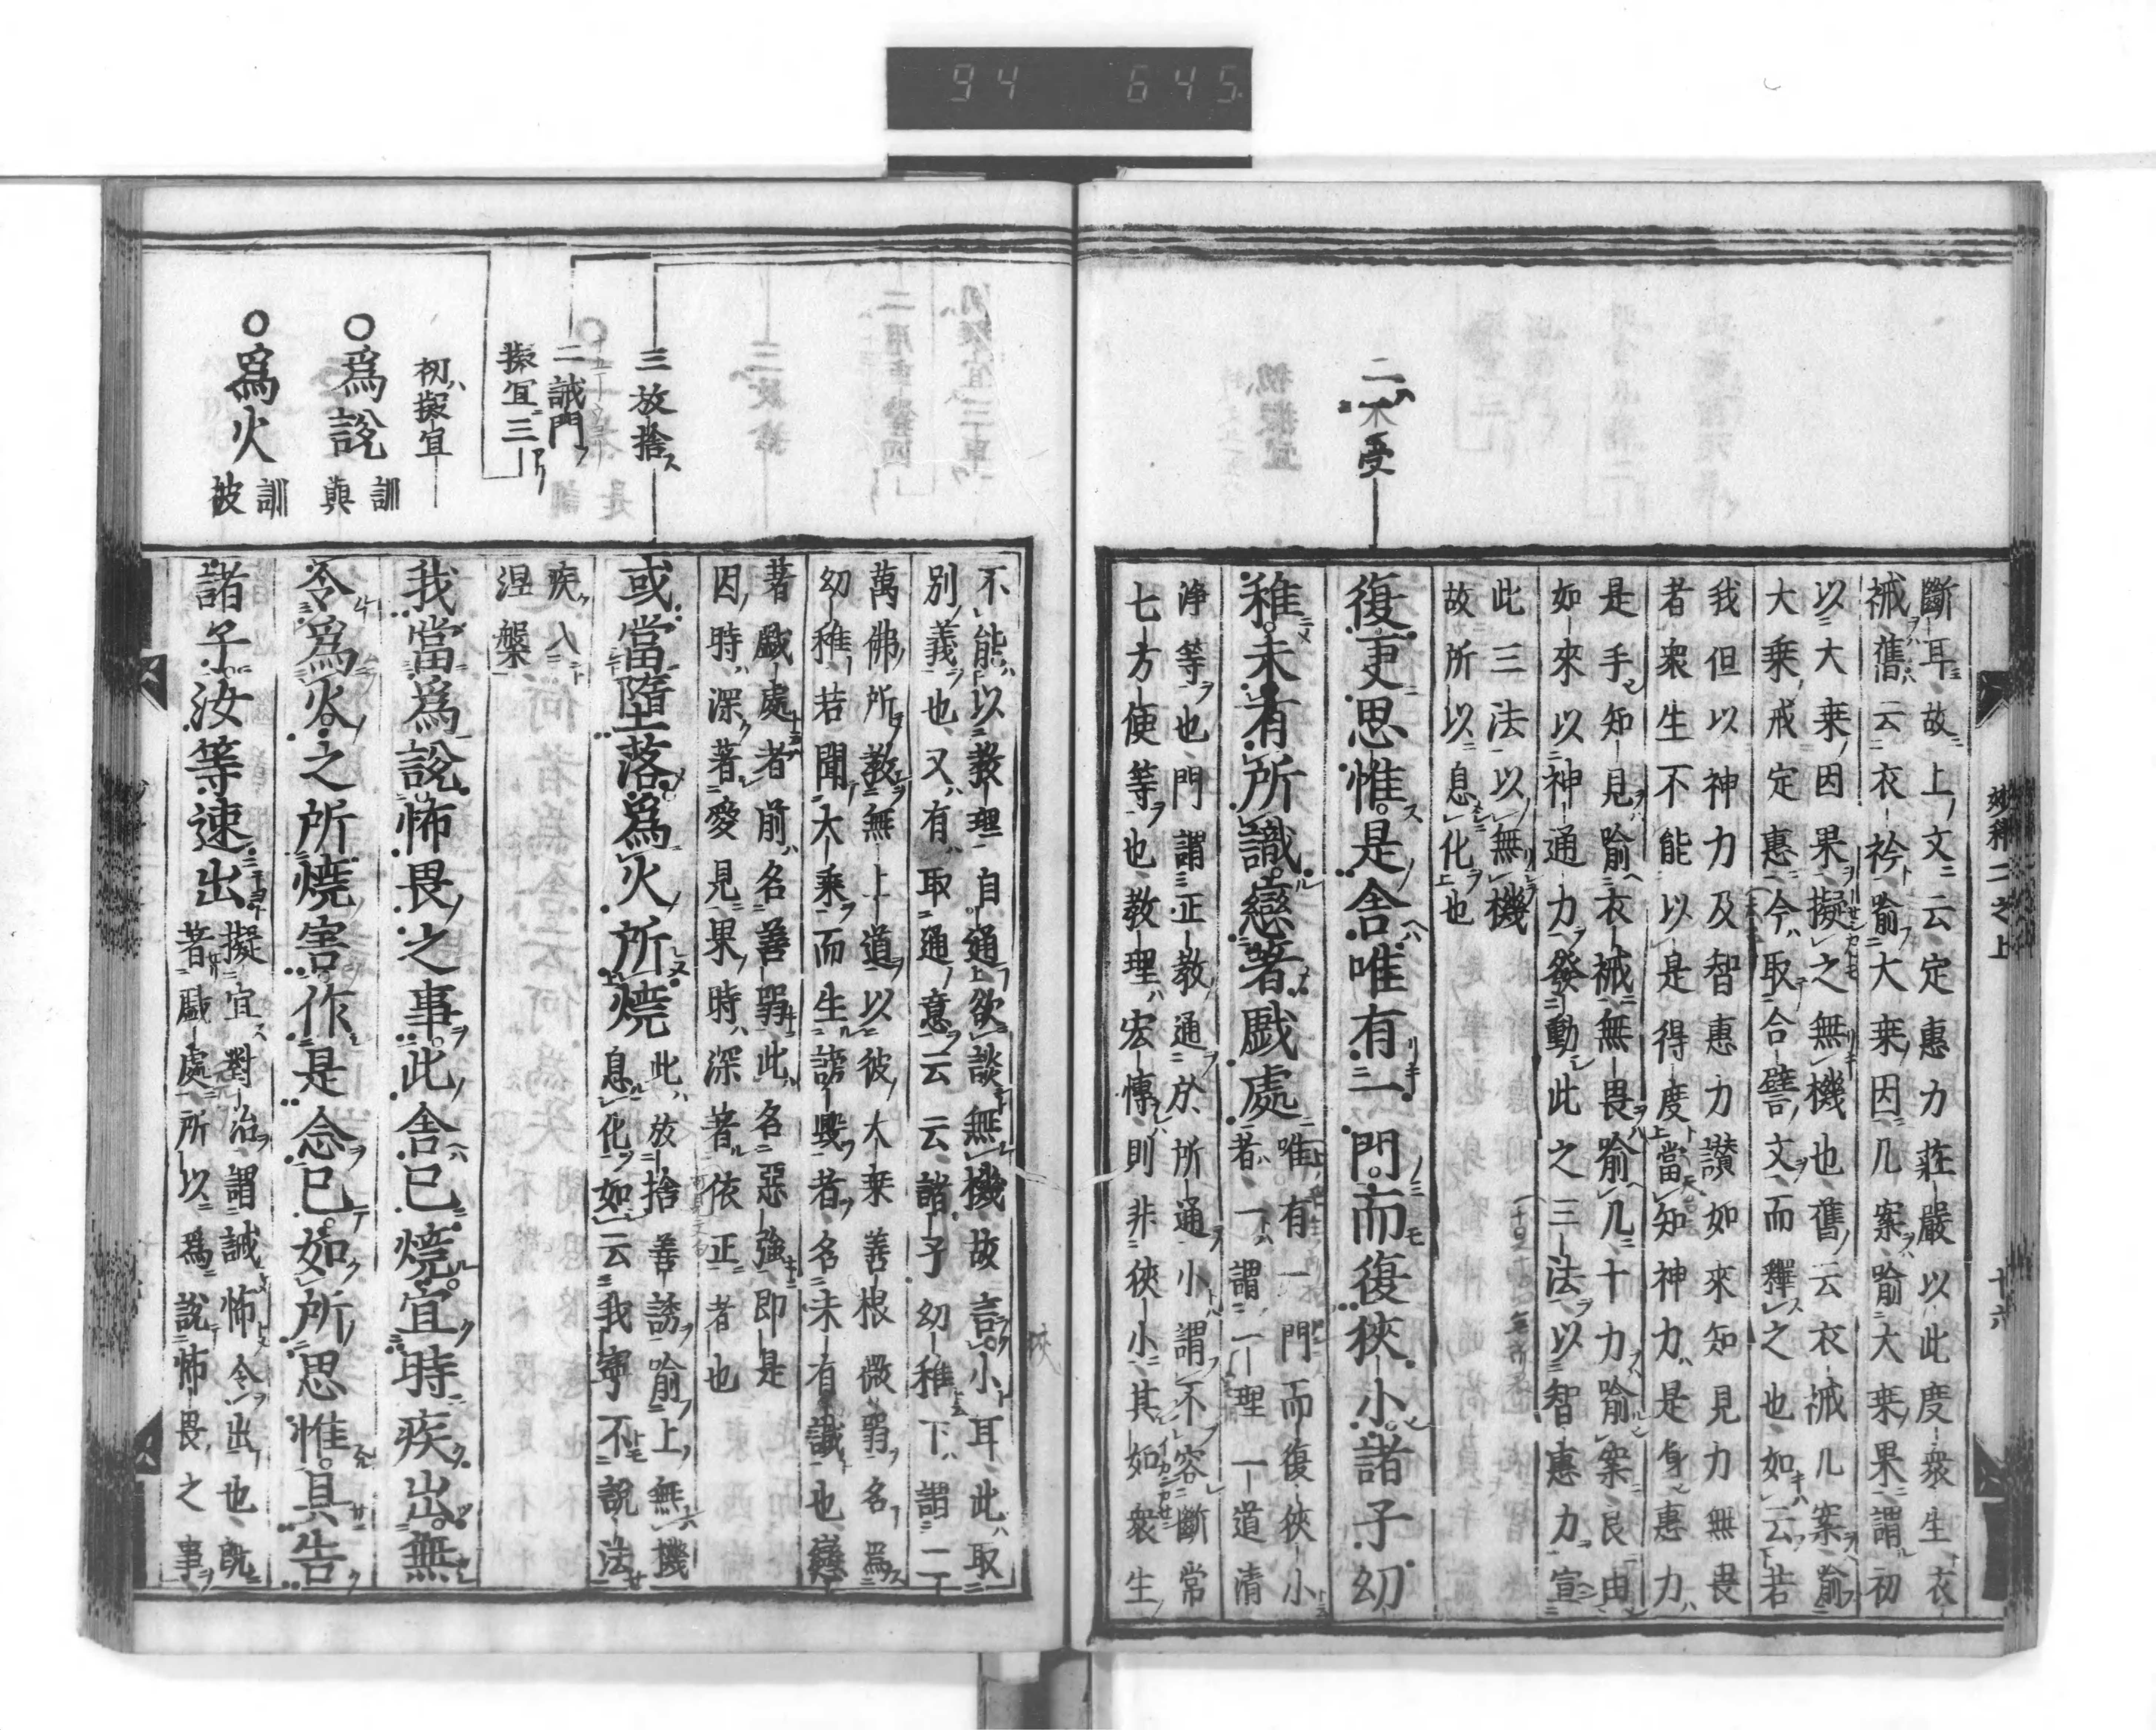 94 645
二不受
斷耳故上文云定惠力莊嚴以此度衆生衣
裓舊云衣衿喻大乗因几案喻大乗果謂初
以大乗因果擬之無機也舊云衣裓几案喻
大乗戒定惠今取合譬文而釋之也如云若
我但以神力及智惠力讃如來知見力無畏
者衆生不能以是得度當知神力是身惠力
是手知見喻衣裓無畏喻几十力喻案良由
如來以神通力發動此之三法以智惠力宣
此三法以無機
故所以息化也
復更思惟是舎唯有一門而復狹小諸子幼
稚未有所識戀著戯處
唯有一門而復狹小
者一謂一理一道清
淨等也門謂正教通於所通小謂不容斷常
七方便等也教理宏博則非狹小其如衆生
妙釋二之上
十六
三放捨
二誡門
擬宜三
初擬宜
○爲說
訓與
○爲火
訓被
不能以教理自通欲談無機故言小耳此取
別義也又有取通意云云諸子幼稚下謂二
萬佛所教無上道以彼大乗善根微弱名爲
幼稚若聞大乘而生謗毀者名未有識也戀
著戯處者前名善弱此名惡強即是
因時深著愛見果時深著依正者也
或當墮落爲火所燒
此放捨善誘喻上無機
息化如云我寧不說法
疾入
涅槃
我當爲說怖畏之事此舎已燒宜時疾出無
令爲火之所燒害作是念已如所思惟具告
諸子汝等速出
擬宜對治謂誡怖令出也既
著戯處所以爲說怖畏之事